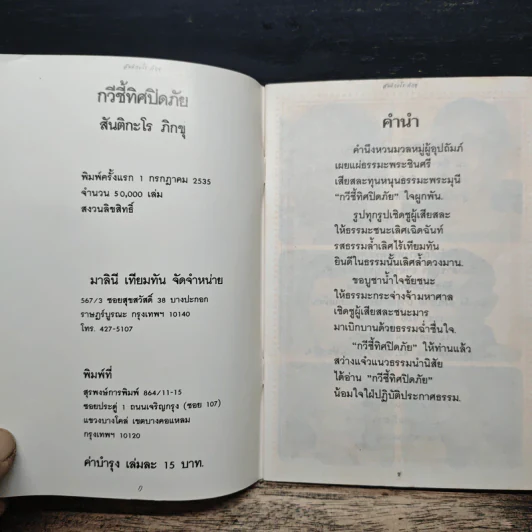 กวีชี้ทิศปิดภัย
สันติกะโร ภิกขุ
พิมพ์ครั้งแรก 1 กรกฎาคม 2535
จำนวน 50,000 เล่ม
สงวนลิขสิทธิ์
มาลินี เทียมทัน จัดจำหน่าย
567/3 ซอยสุขสวัสดิ์ 38 บางปะกอก
ราษฎร์บูรณะ กรุงเทพฯ 10140
โทร. 427-5107
พิมพ์ที่
สุรพงษ์การพิมพ์ 864/11-15
ซอยประดู่ 1 ถนนเจริญกรุง (ซอย 107)
แขวงบางโคล่ เขตบางคอแหลม
กรุงเทพฯ 10120
ค่าบำรุง เล่มละ 15 บาท.
คำนำ
คำนึงหวนมวลหมู่ผู้อุปถัมภ์
เผยแผ่ธรรมะพระชินศรี
เสียสละทุนหนุนธรรมะพระมุนี
"กวีชี้ทิศปิดภัย" ใจผูกพัน.
รูปทุกรูปเชิดชูผู้เสียสละ
ให้ธรรมะชนะเลิศเฉิดฉันท์
รสธรรมล้ำเลิศไร้เทียมทัน
ยินดีในธรรมนั้นเลิศล้ำดวงมาน.
ขอบูชาน้ำใจชัยชนะ
ให้ธรรมะกระจ่างจ้ามหาศาล
เชิดชูผู้เสียสละชนะมาร
มาเบิกบานด้วยธรรมฉ่ำชื่นใจ.
"กวีชี้ทิศปิดภัย" ให้ท่านแล้ว
สว่างแจ้วแนวธรรมนำนิสัย
ได้อ่าน "กวีชี้ทิศปิดภัย"
น้อมใจใฝ่ปฏิบัติประกาศธรรม.